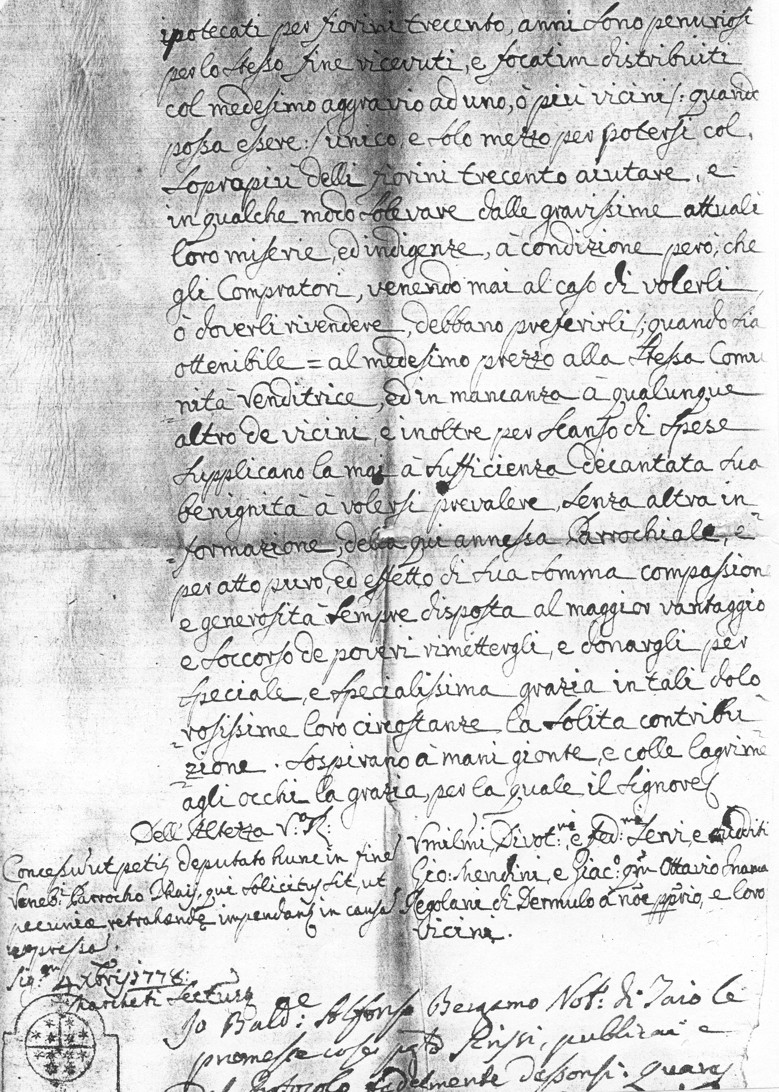 ipotecati per fiorini trecento, anni sono penuriosi
per lo stesso fine ricevuti, e focatim distribuiti
col medesimo aggravio ad uno, ò più vicini /: quando
possa essere :/ unico, e solo mezzo per potersi col,
soprapiù delli fiorini trecento aiutare, e
in qualche modo solevare dalle gravissime attuali
loro miserie, ed indigenze, à condizione però, che
gli Compratori, venendo mai al caso di volerli
ò doverli rivendere, debbano preferirli /; quando sia
ottenibile = al medesimo prezzo alla stessa Comu
nità Venditrice, ed in mancanza à qualunque
altro de vicini, e inoltre per scanso di spese
supplicano la mai à sufficienza decantata sua
benignità à volersi prevalere, senza altra in
formazione, della qui annessa Parrochiale, e
per atto puro, ed effetto di sua somma compassion
e generosità sempre disposta al maggior vantaggio
e soccorso de poveri rimettergli, e donargli per
speciale, e specialissima grazia in tali dolo
rosissime loro circostanze la solita contribu
zione. Sospirano à mani gionte, e colle lagrime
agli occhi la grazia, per la quale il Signore
Dell'Altezza V.a R.
Umilmi, Divot.mi e fed.mi Servi, e sudditi
Gio: Mendini, e Giac.o qm Ottavio Inama
Regolani di Dermulo à nõe pprio, e loro
vicini.
Concessu ut petit, deputato hunc in fine
Venebi Parrocho Thaij, qui solicitus sit, ut
pecuniæ retrahendę impendant in causa
expressa.
Sig. 4 Xbris 1778:
Jo Bald: Alfonso Bergamo Not: di Taio le
promesse cose scrissi, publicai e
fidelmente